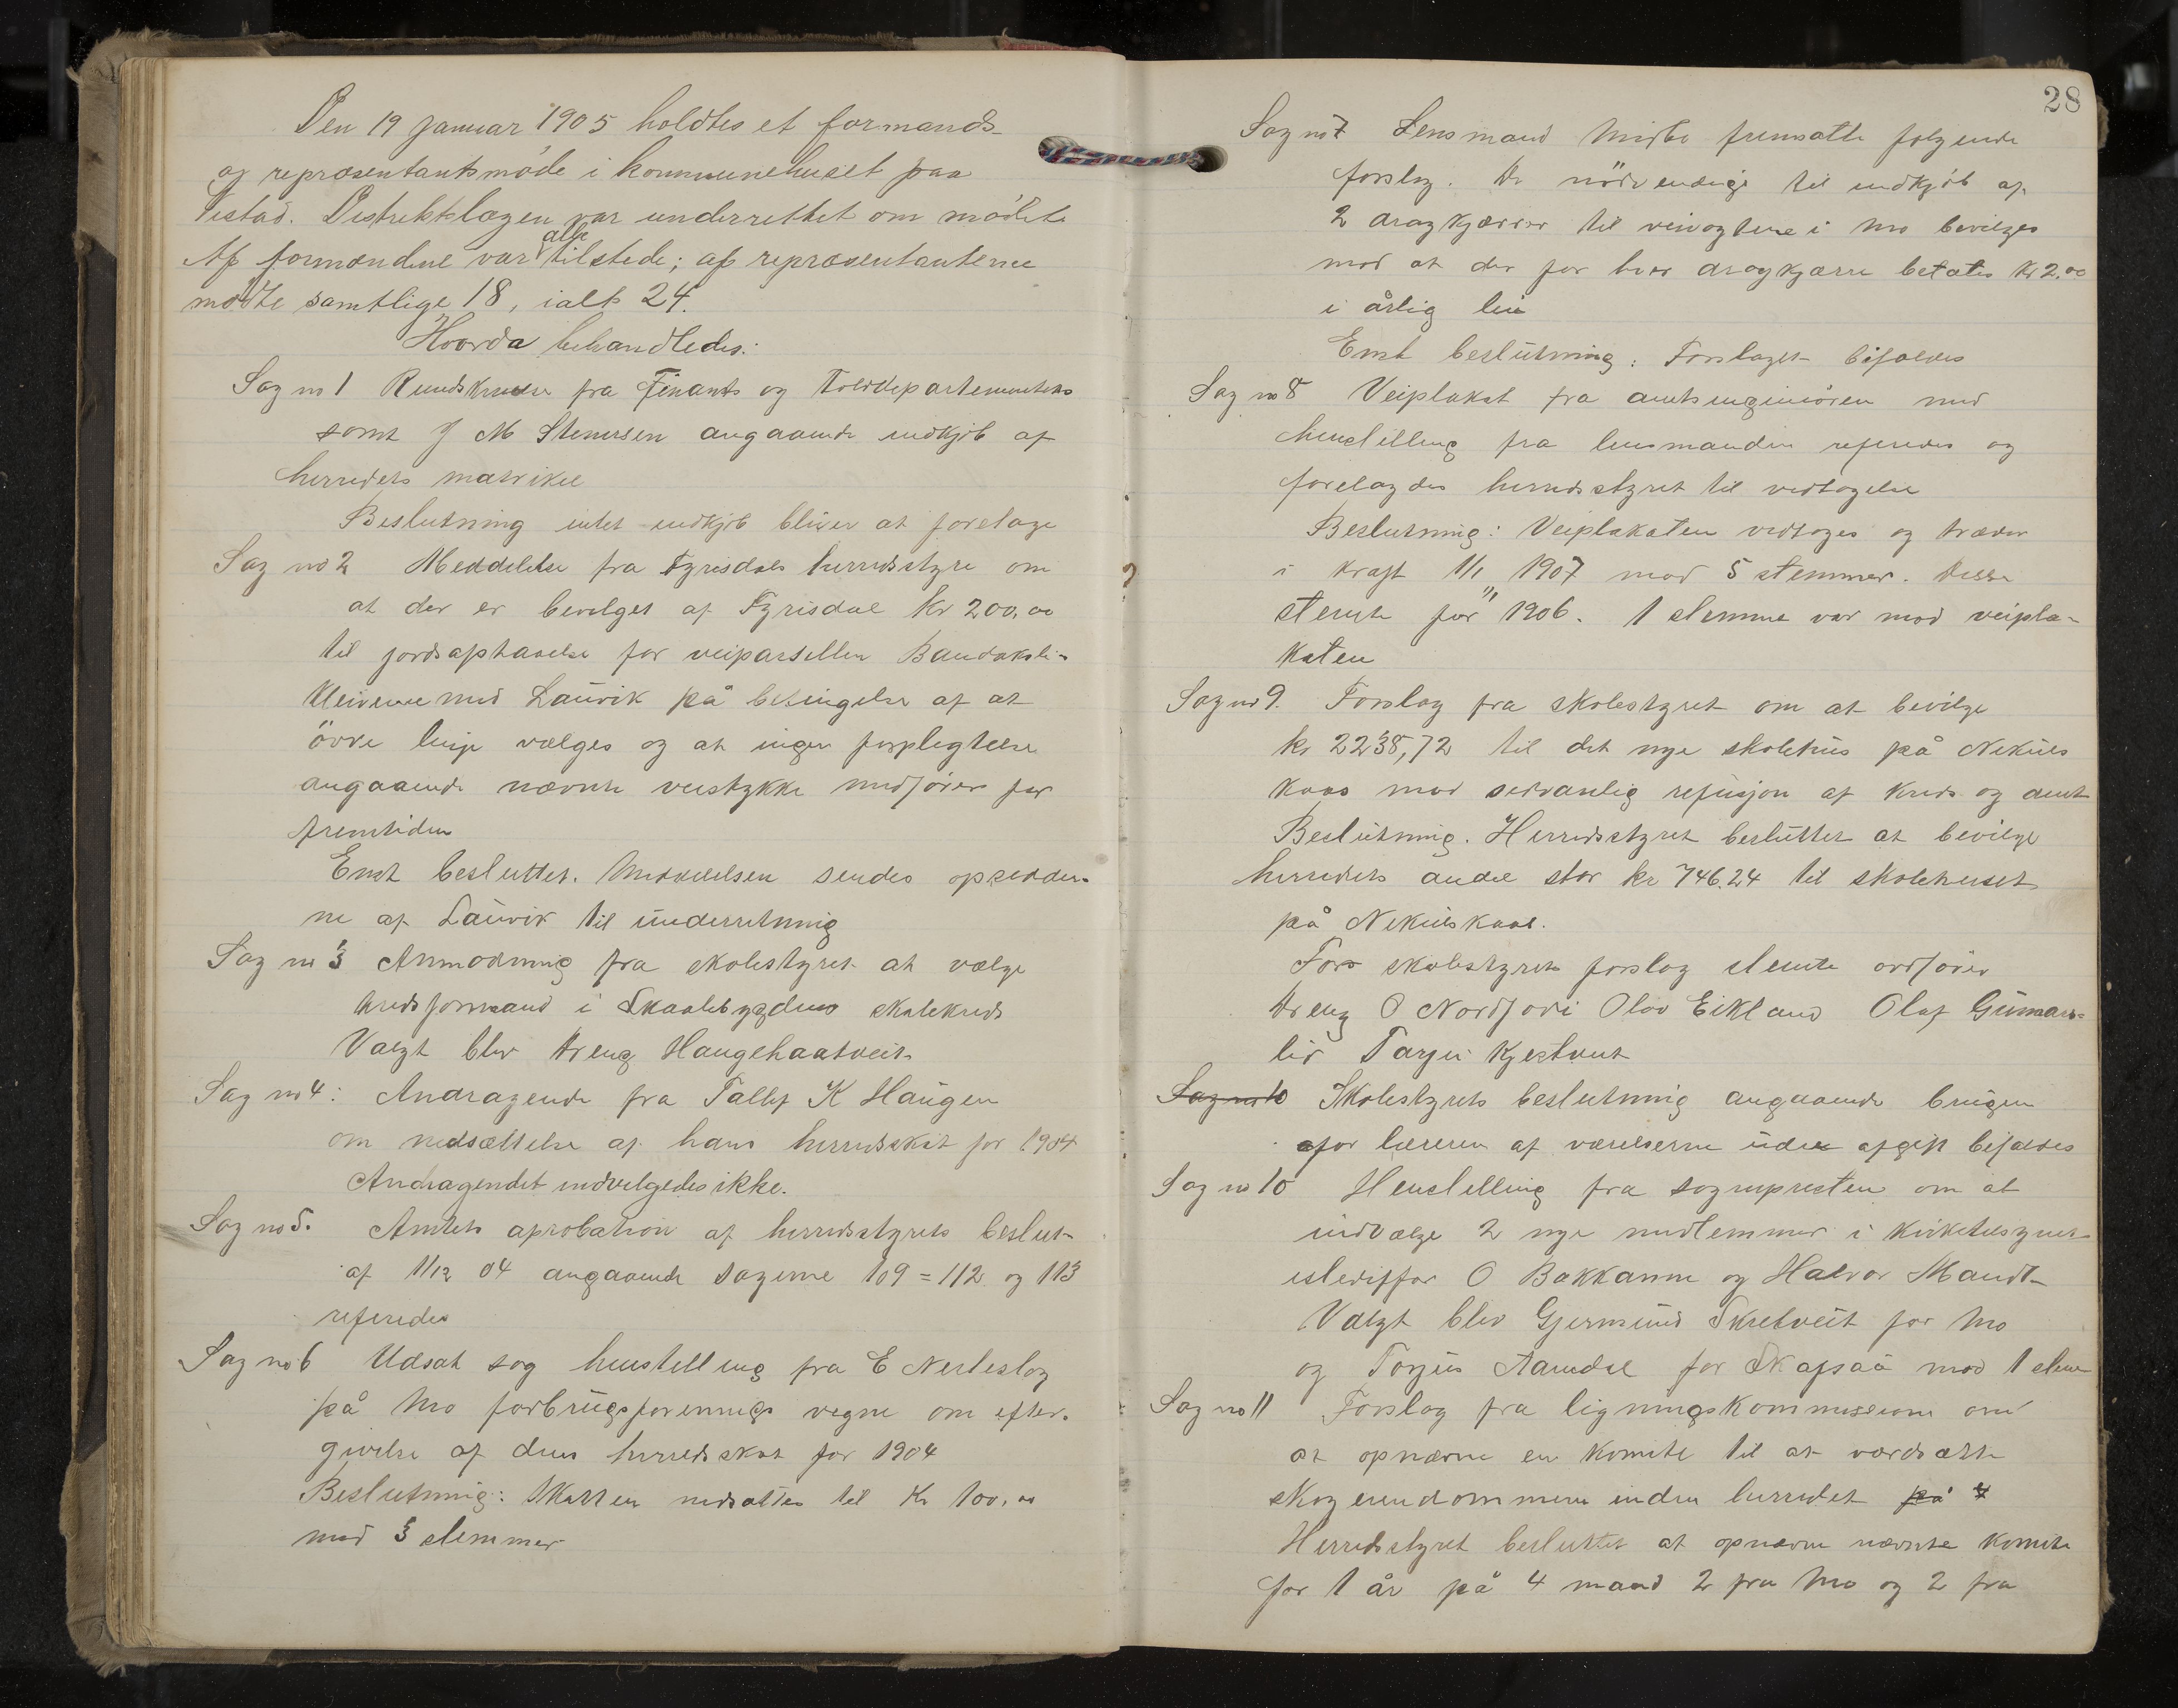 Den 19 januar 1905 holdtes et formands-
og repræsentantsmøde i kommunehuset paa
Vistad. Distriktslægen var underrettet om mødete
Af formændene var alle tilstede; af repræsentanterne
mødte samtlige 18, ialt 24.
Hvorda behandledes:
Sag no 1 Rundskrivelse fra Finants og Tolddepartementets
samt J M Stenersen angaaende indkjøb af
herredets matrikel
Beslutning intet indkjøb bliver at foretage
Sag no 2 Meddelelse fra Fyrisdals herredsstyre om
at der er bevilget af Fyrisdal kr 200,00
til jordaphavelse for veiparsellen Bandaksli-
Kleivene med Lauvik på betingelse af at
övre linje vælges og at ingen forpligtelse
angaaende nævnte veistykke medfører for
fremtiden
Enst besluttet. Meddelelsen sendes opsidder-
ne af Lauvik til underretning
Sag no 3 Anmodning fra skolestyret at vælge
kredsformand i Skaalebygdens skolekreds
Valgt blev Dreng Haugehaatveit
Sag no 4: Andragende fra Tallef K Haugen
om nedsættelse af hans herredsskat for 1904
Andragendet indvilgedes ikke.
Sag no 5. Amtets aprobation af herredsstyrets beslut-
af 1/12 04 angaaende sagerne 109 = 112 og 113
referedes
Sag no 6 Udsat sag henstilling fra E Nesleslog
på Mo forbrugsforenings vegne om efter-
givelse af dens herredsskat for 1904
Beslutning: Skatten nedsættes til Kr 100,00
mod 3 stemmer
28
Sag no 7 Lensmand Midbø fremsatte følgende
forslag. De nödvendige til indkjøb af
2 dragkjærrer til veivogterne i Mo bevilges
mod at der for hver dragkjærre betales kr 2,00
i årlig leie
Enst beslutning: Forslaget bifaldes
Sag no 8 Veiplakat fra amtsingeniören med
henstilling fra lensmanden referedes og
forelagdes herredsstyret til vedtagelse
Beslutning: Veiplakaten vedtages og træder
i kraft 1/1 1907 mod 5 stemmer. Disse
stemte for 1/1 1906. 1 stemme var mod veipla-
katen
Sag no 9. Forslag fra skolestyret om at bevilge
kr 2238,72 til det nye skolehus på Nekuls
kaas mod sedvanlig refusjon af kreds og amt
Beslutning. Herredsstyret besluttet at bevilge
herredets andel stor kr 746.24 til skolehuset
på Nekulskaas.
For skolestyrets forslag stemte ordfører
Dreng O Nordjordi Olav Eikland Olaf Gunnars-
lid Tarjei Kjestveit
Sag no 10 Skolestyrets beslutning angaaende brugen
for læreren af værelserne uden afgift bifaldes
Sag no 10 Henstilling fra sognepresten om at
indvælge 2 nye medlemmer i kirketilsynet
istedetfor O Bakkanne og Halvor Mandt
Valgt blev Gjermund Skretveit for Mo
og Torjus Aamdal for Skafsaa mod 1 stem
Sag no 11 Forslag fra ligningskommissione om
at opnævne en komite til at værdsætte
skogeiendommene inden herredet på 4
Herredsstyret besluttet at opnævne nævnte komite
for 1 år på 4 mand 2 fra Mo og 2 fra